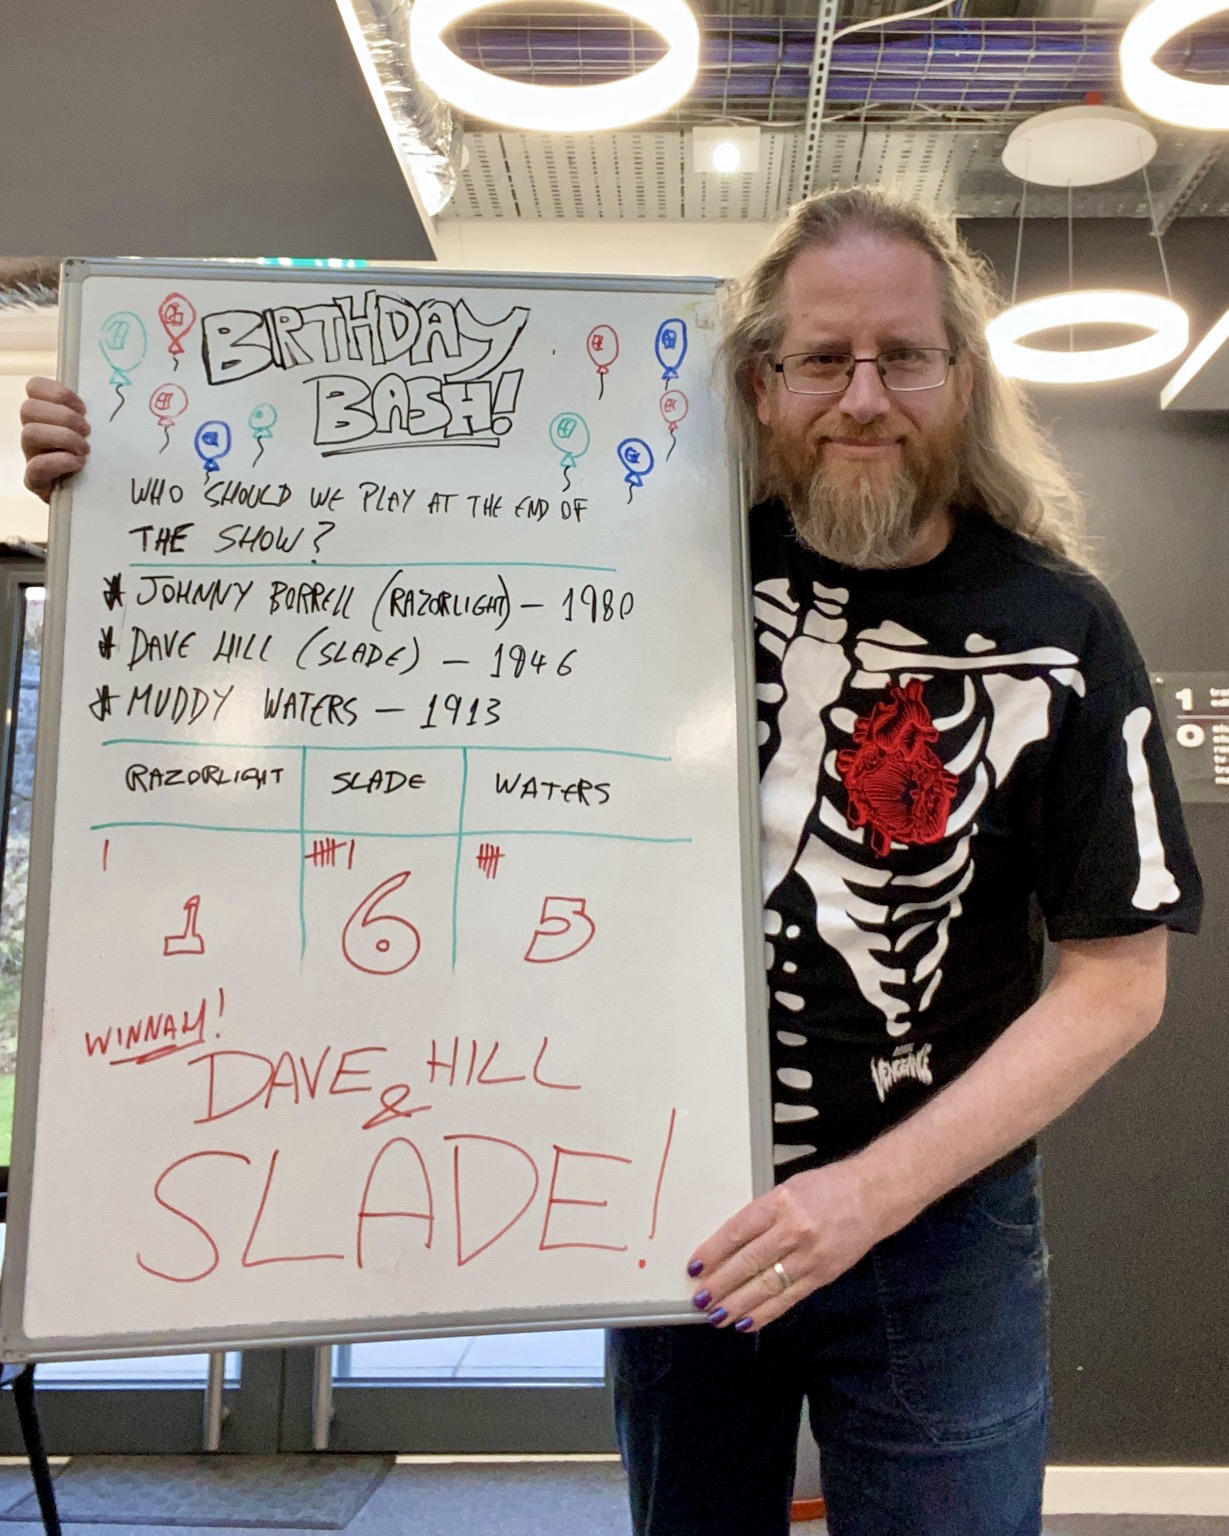 BIRTHDAY
BASH!
WHO SHOULD WE PLAY AT THE END OF
THE SHOW?
* JOHNNY BORRELL (RAZORLIGHT) – 1980
* DAVE HILL (SLADE) – 1946
* MUDDY WATERS – 1913
RAZORLIGHT SLADE WATERS
1 6 5
WINNAH!
DAVE HILL
&
SLADE!
VENGEANCE
1
0